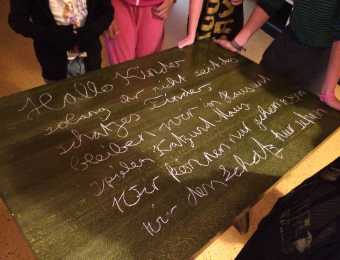 Hallo Kinder
solang ihr nicht sechs
schatzes Finder
bleiben wir im Haus und
spielen Katz und Maus
Hier können wir gehen
wir den Schatz hier